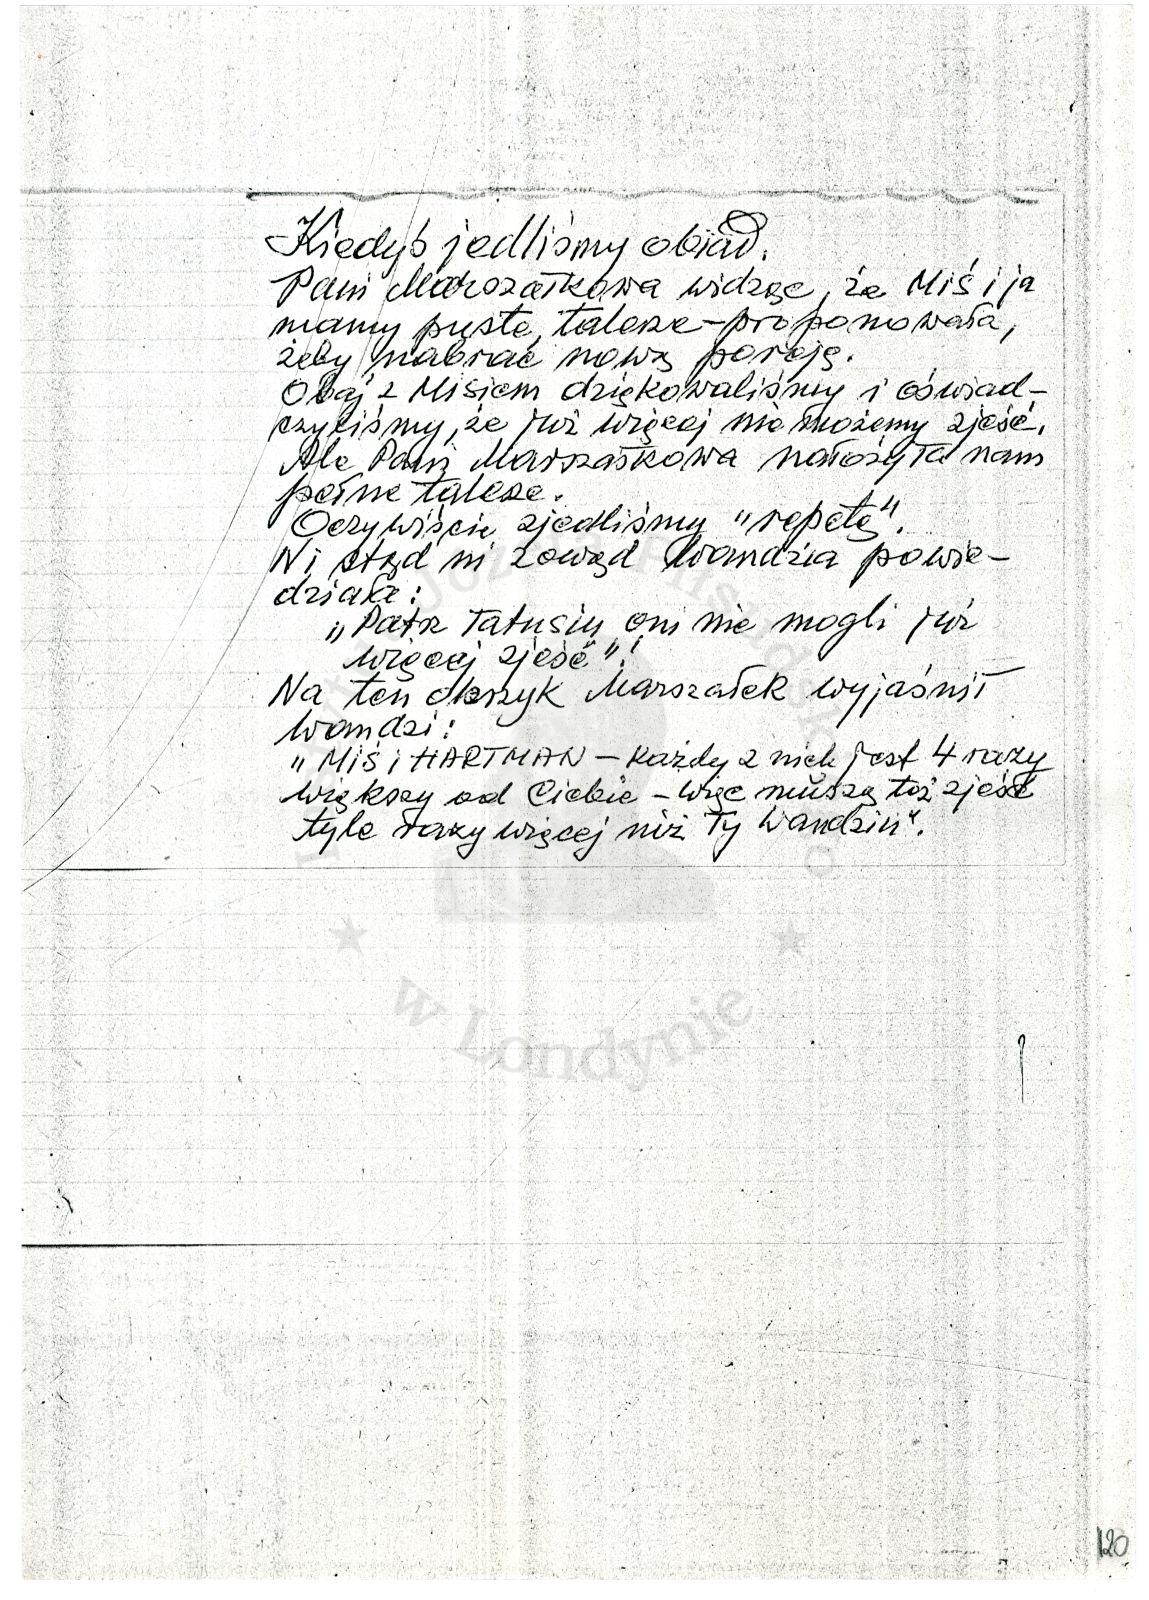 Kiedyś jedliśmy obiad.
Pani Marszałkowa widząc, że Miś i ja
mamy puste talerze – proponowała,
żeby nabrać nową porcję.
Obaj z Misiem dziękowaliśmy i oświad-
czyliśmy, że już więcej nie możemy zjeść.
Ale Pani Marszałkowa nałożyła nam
pełne talerze.
Oczywiście zjedliśmy "repetę".
Ni stąd ni zowąd Wandzia powie-
działa:
"Patrz Tatusiu oni nie mogli już
więcej zjeść"!
Na ten okrzyk Marszałek wyjaśnił
Wandzi:
"Miś i HARTMAN – każdy z nich jest 4 razy
większy od Ciebie – więc muszą też zjeść
tyle razy więcej niż Ty Wandziu".
w Londynie
120